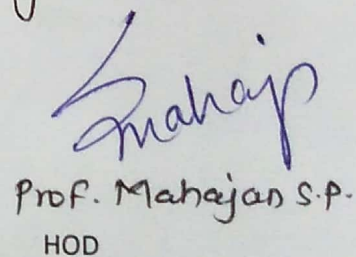 Smahajs
Prof. Mahajan S.P.
HOD